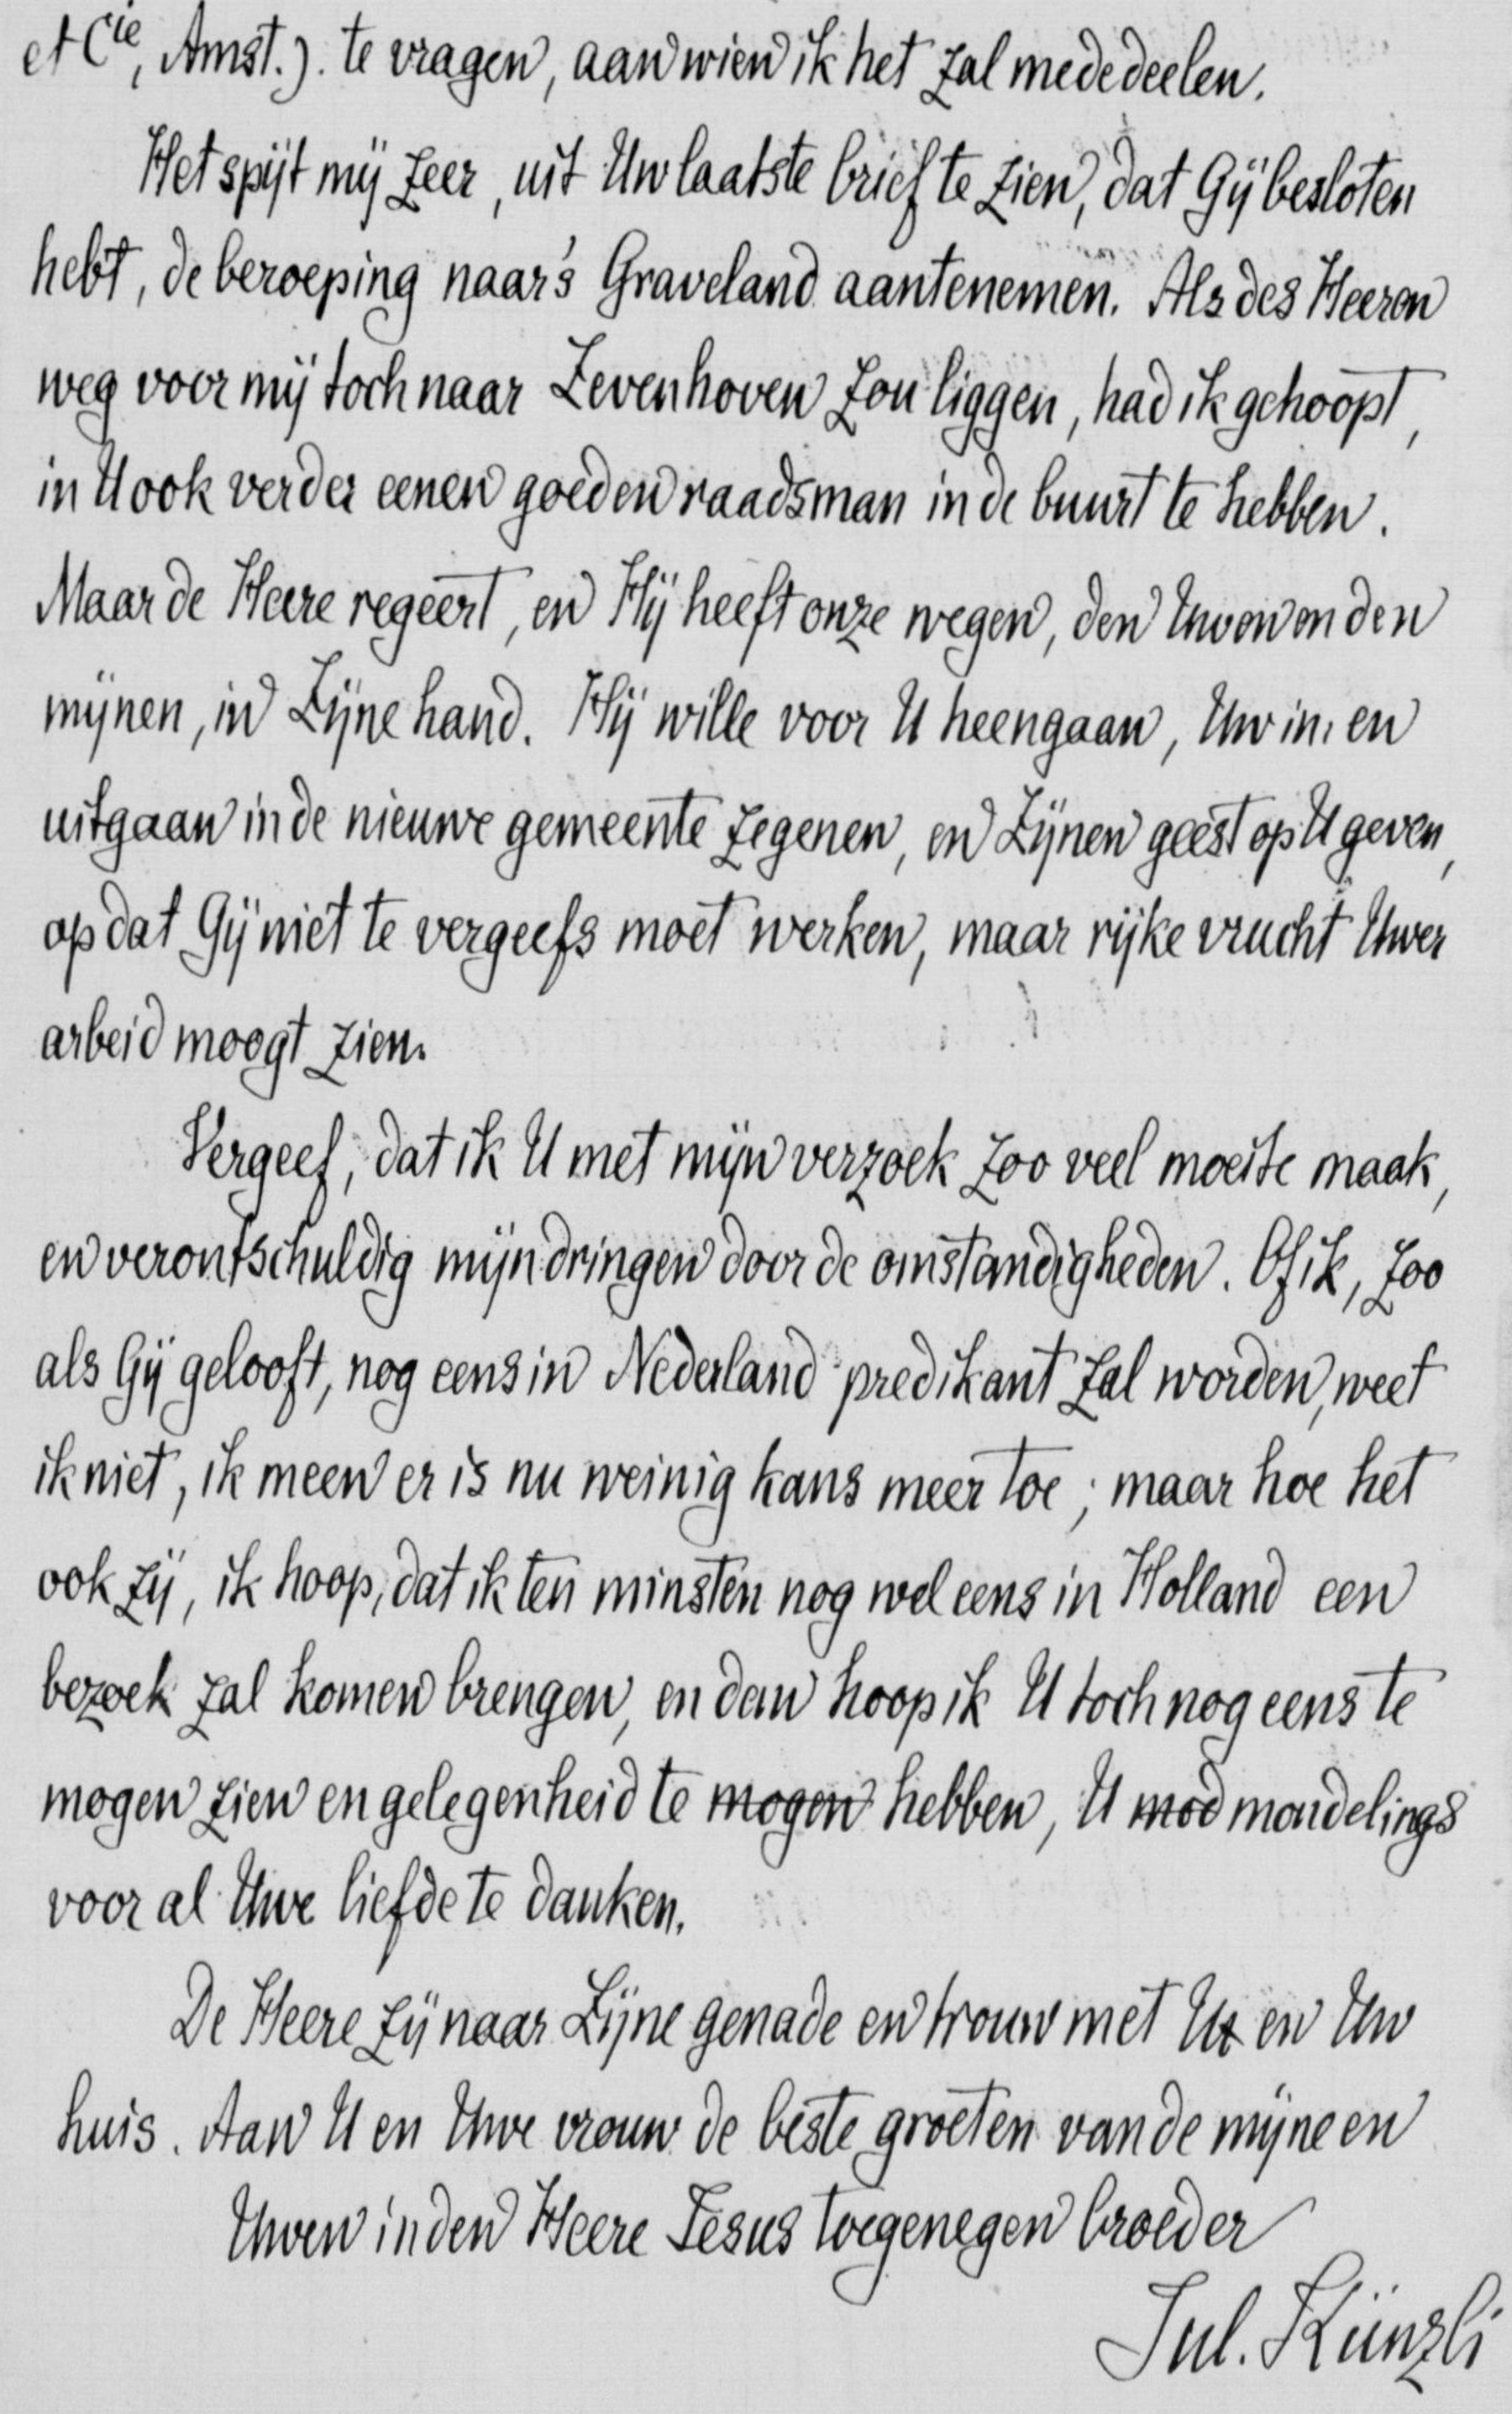 et Cie, Amst.). te vragen, aan wien ik het zal mededeelen.
Het spijt mij zeer, uit Uw laatste brief te zien, dat Gij besloten
hebt, de beroeping naar 's Graveland aantenemen. Als des Heeren
weg voor mij toch naar Zevenhoven zou liggen, had ik gehoopt,
in U ook verder eenen goeden raadsman in de buurt te hebben.
Maar de Heere regeert, en Hij heeft onze wegen, den Uwen en den
mijnen, in Zijne hand. Hij wille voor U heengaan, Uw in- en
uitgaan in de nieuwe gemeente zegenen, en Zijnen geest op U geven,
op dat Gij niet te vergeefs moet werken, maar rijke vrucht Uwer
arbeid moogt zien.
Vergeef, dat ik U met mijn verzoek zoo veel moeite maak,
en verontschuldig mijn dringen door de omstandigheden. Of ik, zoo
als Gij gelooft, nog eens in Nederland predikant zal worden, weet
ik niet, ik meen er is nu weinig kans meer toe; maar hoe het
ook zij, ik hoop, dat ik ten minsten nog wel eens in Holland een
bezoek zal komen brengen, en dan hoop ik U toch nog eens te
mogen zien en gelegenheid te mogen hebben, U mod mondelings
voor al Uwe liefde te danken.
De Heere zij naar Zijne genade en trouw met U en Uw
huis. Aan U en Uwe vrouw de beste groeten van de mijne en
Uwen in den Heere Jesus toegenegen broeder
Jul. Künzli